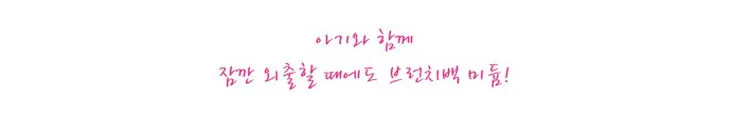 아기와 함께
잠깐 외출할 때에도 브런치백 미듐!